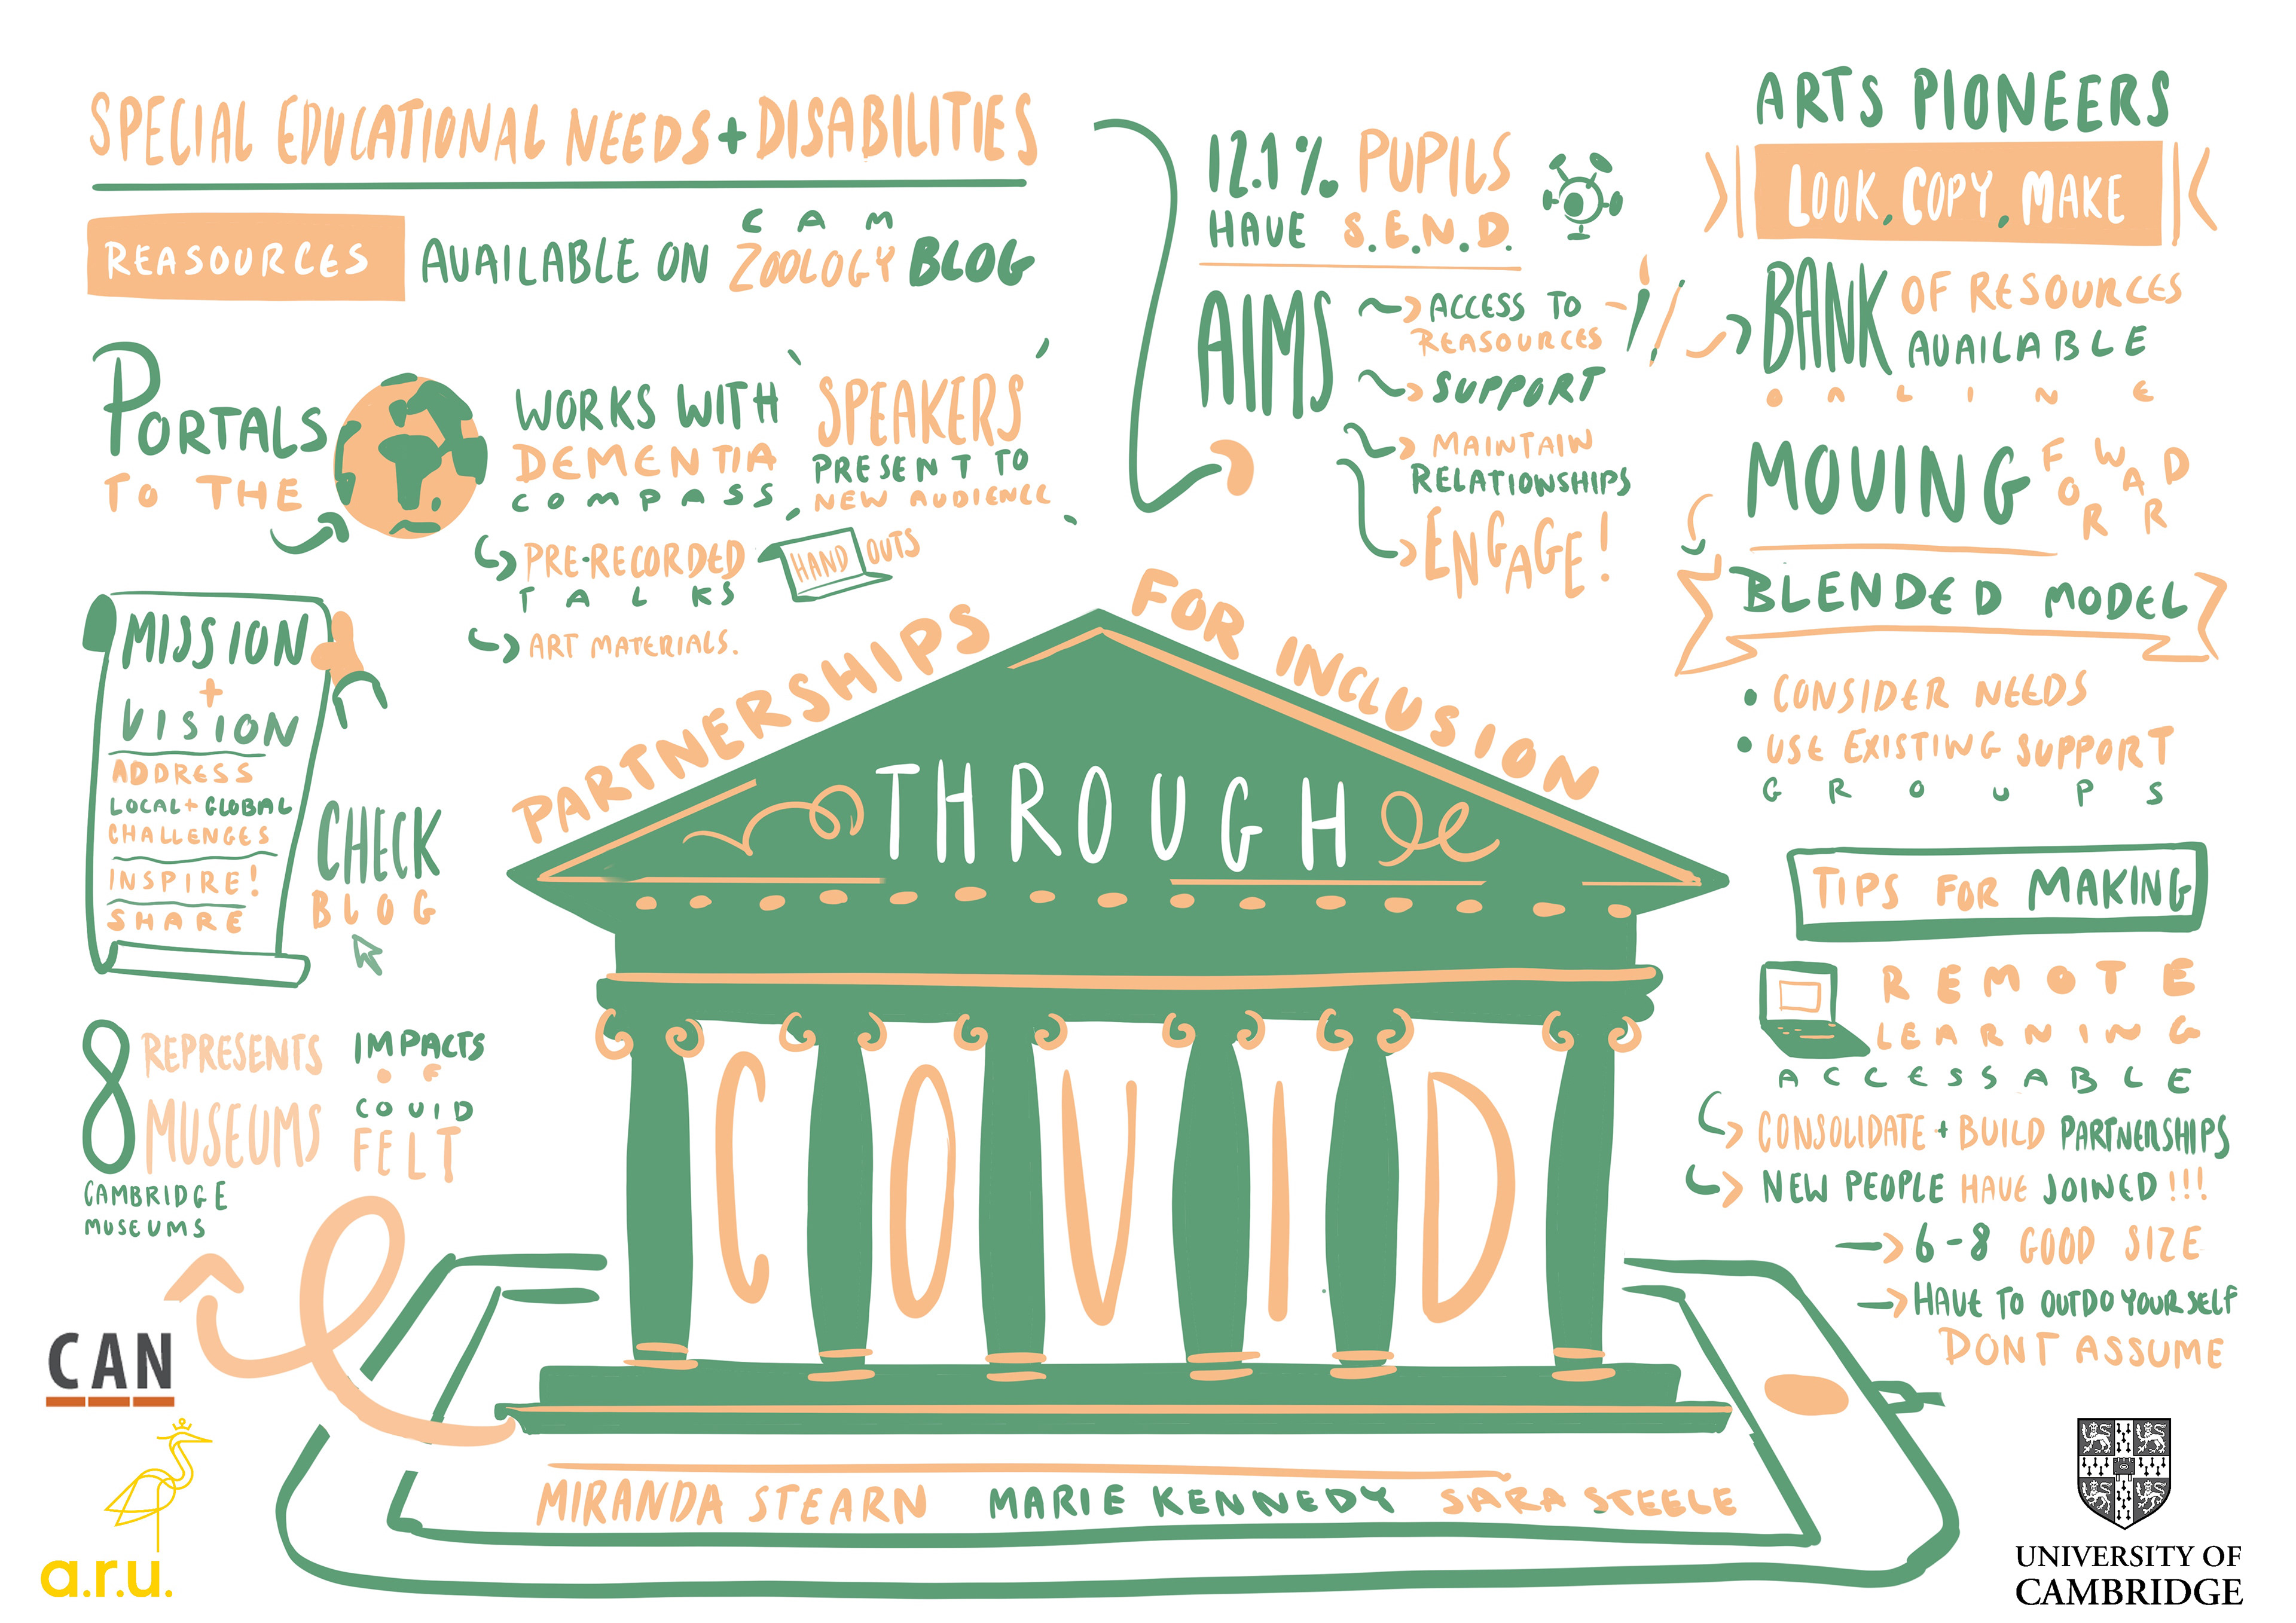 SPECIAL EDUCATIONAL NEEDS + DISABILITIES
REASOURCES AVAILABLE ON CAM ZOOLOGY BLOG
PORTALS
TO THE
WORKS WITH
DEMENTIA
COMPASS
"SPEAKERS
PRESENT TO
NEW AUDIENCE"
PRE-RECORDED
TALKS
HAND OUTS
ART MATERIALS.
MISSION
+
VISION
ADDRESS
LOCAL + GLOBAL
CHALLENGES
INSPIRE!
SHARE
CHECK
BLOG
8 REPRESENTS
MUSEUMS
CAMBRIDGE
MUSEUMS
IMPACTS
OF
COVID
FELT
12.1% PUPILS
HAVE S.E.N.D.
AIMS
ACCESS TO
REASOURCES
SUPPORT
MAINTAIN
RELATIONSHIPS
ENGAGE!
PARTNERSHIPS FOR INCLUSION
THROUGH
COVID
MIRANDA STEARN MARIE KENNEDY SARA STEELE
ARTS PIONEERS
LOOK, COPY, MAKE
BANK OF RESOURCES
AVAILABLE
ONLINE
MOVING FORWARD
BLENDED MODEL
• CONSIDER NEEDS
• USE EXISTING SUPPORT
GROUPS
TIPS FOR MAKING
REMOTE
LEARNING
ACCESSABLE
CONSOLIDATE + BUILD PARTNERSHIPS
NEW PEOPLE HAVE JOINED!!!
6-8 GOOD SIZE
HAVE TO OUTDO YOURSELF
DONT ASSUME
CAN
a.r.u.
UNIVERSITY OF
CAMBRIDGE